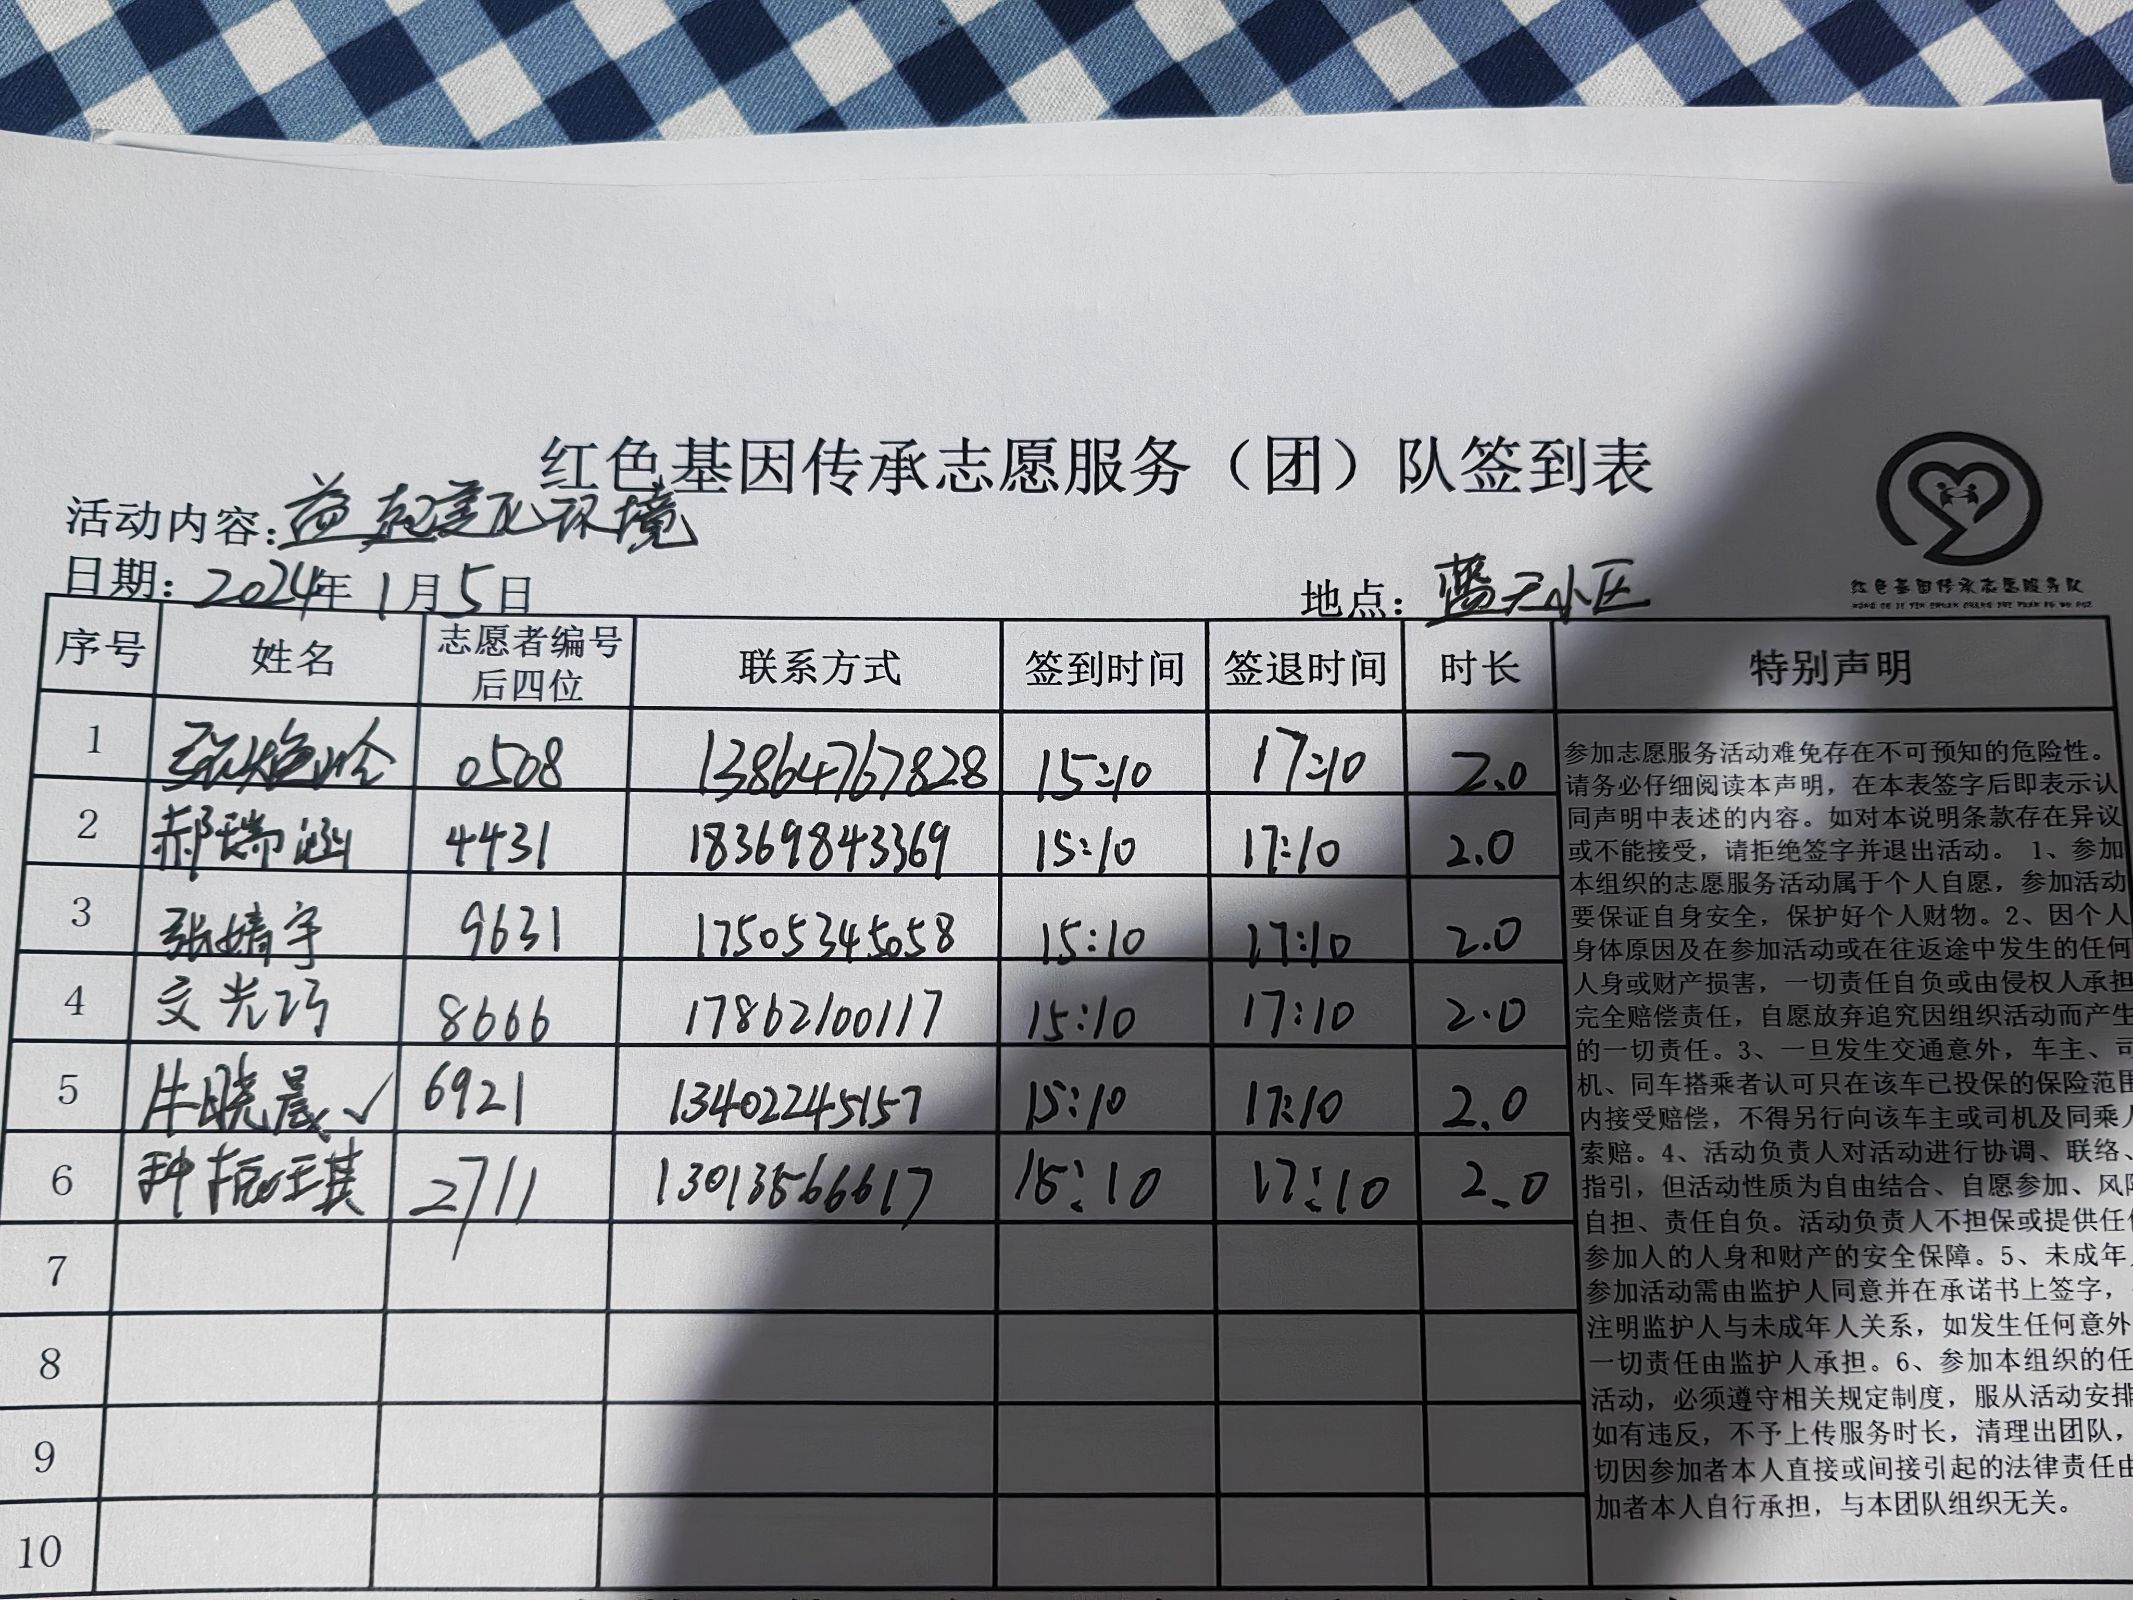 红色基因传承志愿服务（团）队签到表
活动内容：益起美化环境
日期：2024年1月5日 地点：蓝天小区
红色基因传承志愿服务队
序号 姓名 志愿者编号后四位 联系方式 签到时间 签退时间 时长 特别声明
1 0508 13864767828 15:10 17:10 2.0
2 郝瑞涵 4431 18369843369 15:10 17:10 2.0
3 张婧宇 9631 17505345058 15:10 17:10 2.0
4 文光巧 8666 17862100117 15:10 17:10 2.0
5 牛晓晨 ✓ 6921 13402245157 15:10 17:10 2.0
6 2711 15:10 17:10 2.0
7
8
9
10
参加志愿服务活动难免存在不可预知的危险性。
请务必仔细阅读本声明，在本表签字后即表示认
同声明中表述的内容。如对本说明条款存在异议
或不能接受，请拒绝签字并退出活动。 1、参加
本组织的志愿服务活动属于个人自愿，参加活动
要保证自身安全，保护好个人财物。2、因个人
身体原因及在参加活动或在往返途中发生的任何
人身或财产损害，一切责任自负或由侵权人承担
完全赔偿责任，自愿放弃追究因组织活动而产生
的一切责任。3、一旦发生交通意外，车主、司
机、同车搭乘者认可只在该车已投保的保险范围
内接受赔偿，不得另行向该车主或司机及同乘人
索赔。4、活动负责人对活动进行协调、联络、
指引，但活动性质为自由结合、自愿参加、风险
自担、责任自负。活动负责人不担保或提供任何
参加人的人身和财产的安全保障。5、未成年人
参加活动需由监护人同意并在承诺书上签字，
注明监护人与未成年人关系，如发生任何意外
一切责任由监护人承担。6、参加本组织的任
活动，必须遵守相关规定制度，服从活动安排
如有违反，不予上传服务时长，清理出团队，
切因参加者本人直接或间接引起的法律责任由
加者本人自行承担，与本团队组织无关。